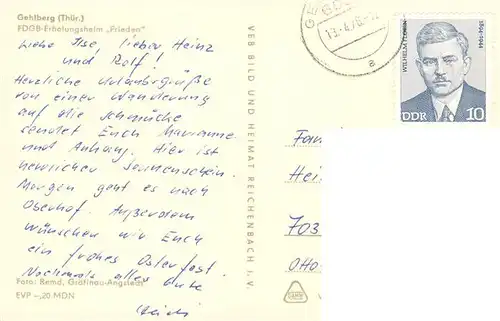 Gehlberg (Thür.)
FDGB-Erholungsheim „Frieden"
Liebe Ilse, lieber Heinz
und Rolf!
Herzliche Urlaubsgrüße
von einer Wanderung
auf die Schmücke
sendet Euch Marianne
und Anhang. Hier ist
herrlicher Sonnenschein.
Morgen geht es nach
Oberhof. Außerdem
wünschen wir Euch
ein frohes Osterfest.
Nochmals alles Gute
Foto: Remd, Gräfinau-Angstedt
EVP -,20 MDN
VEB BILD UND HEIMAT REICHENBACH i. V.
a
WILHELM FLORIN
1894-1944
DDR 10
Fam
Hei
703
Otto